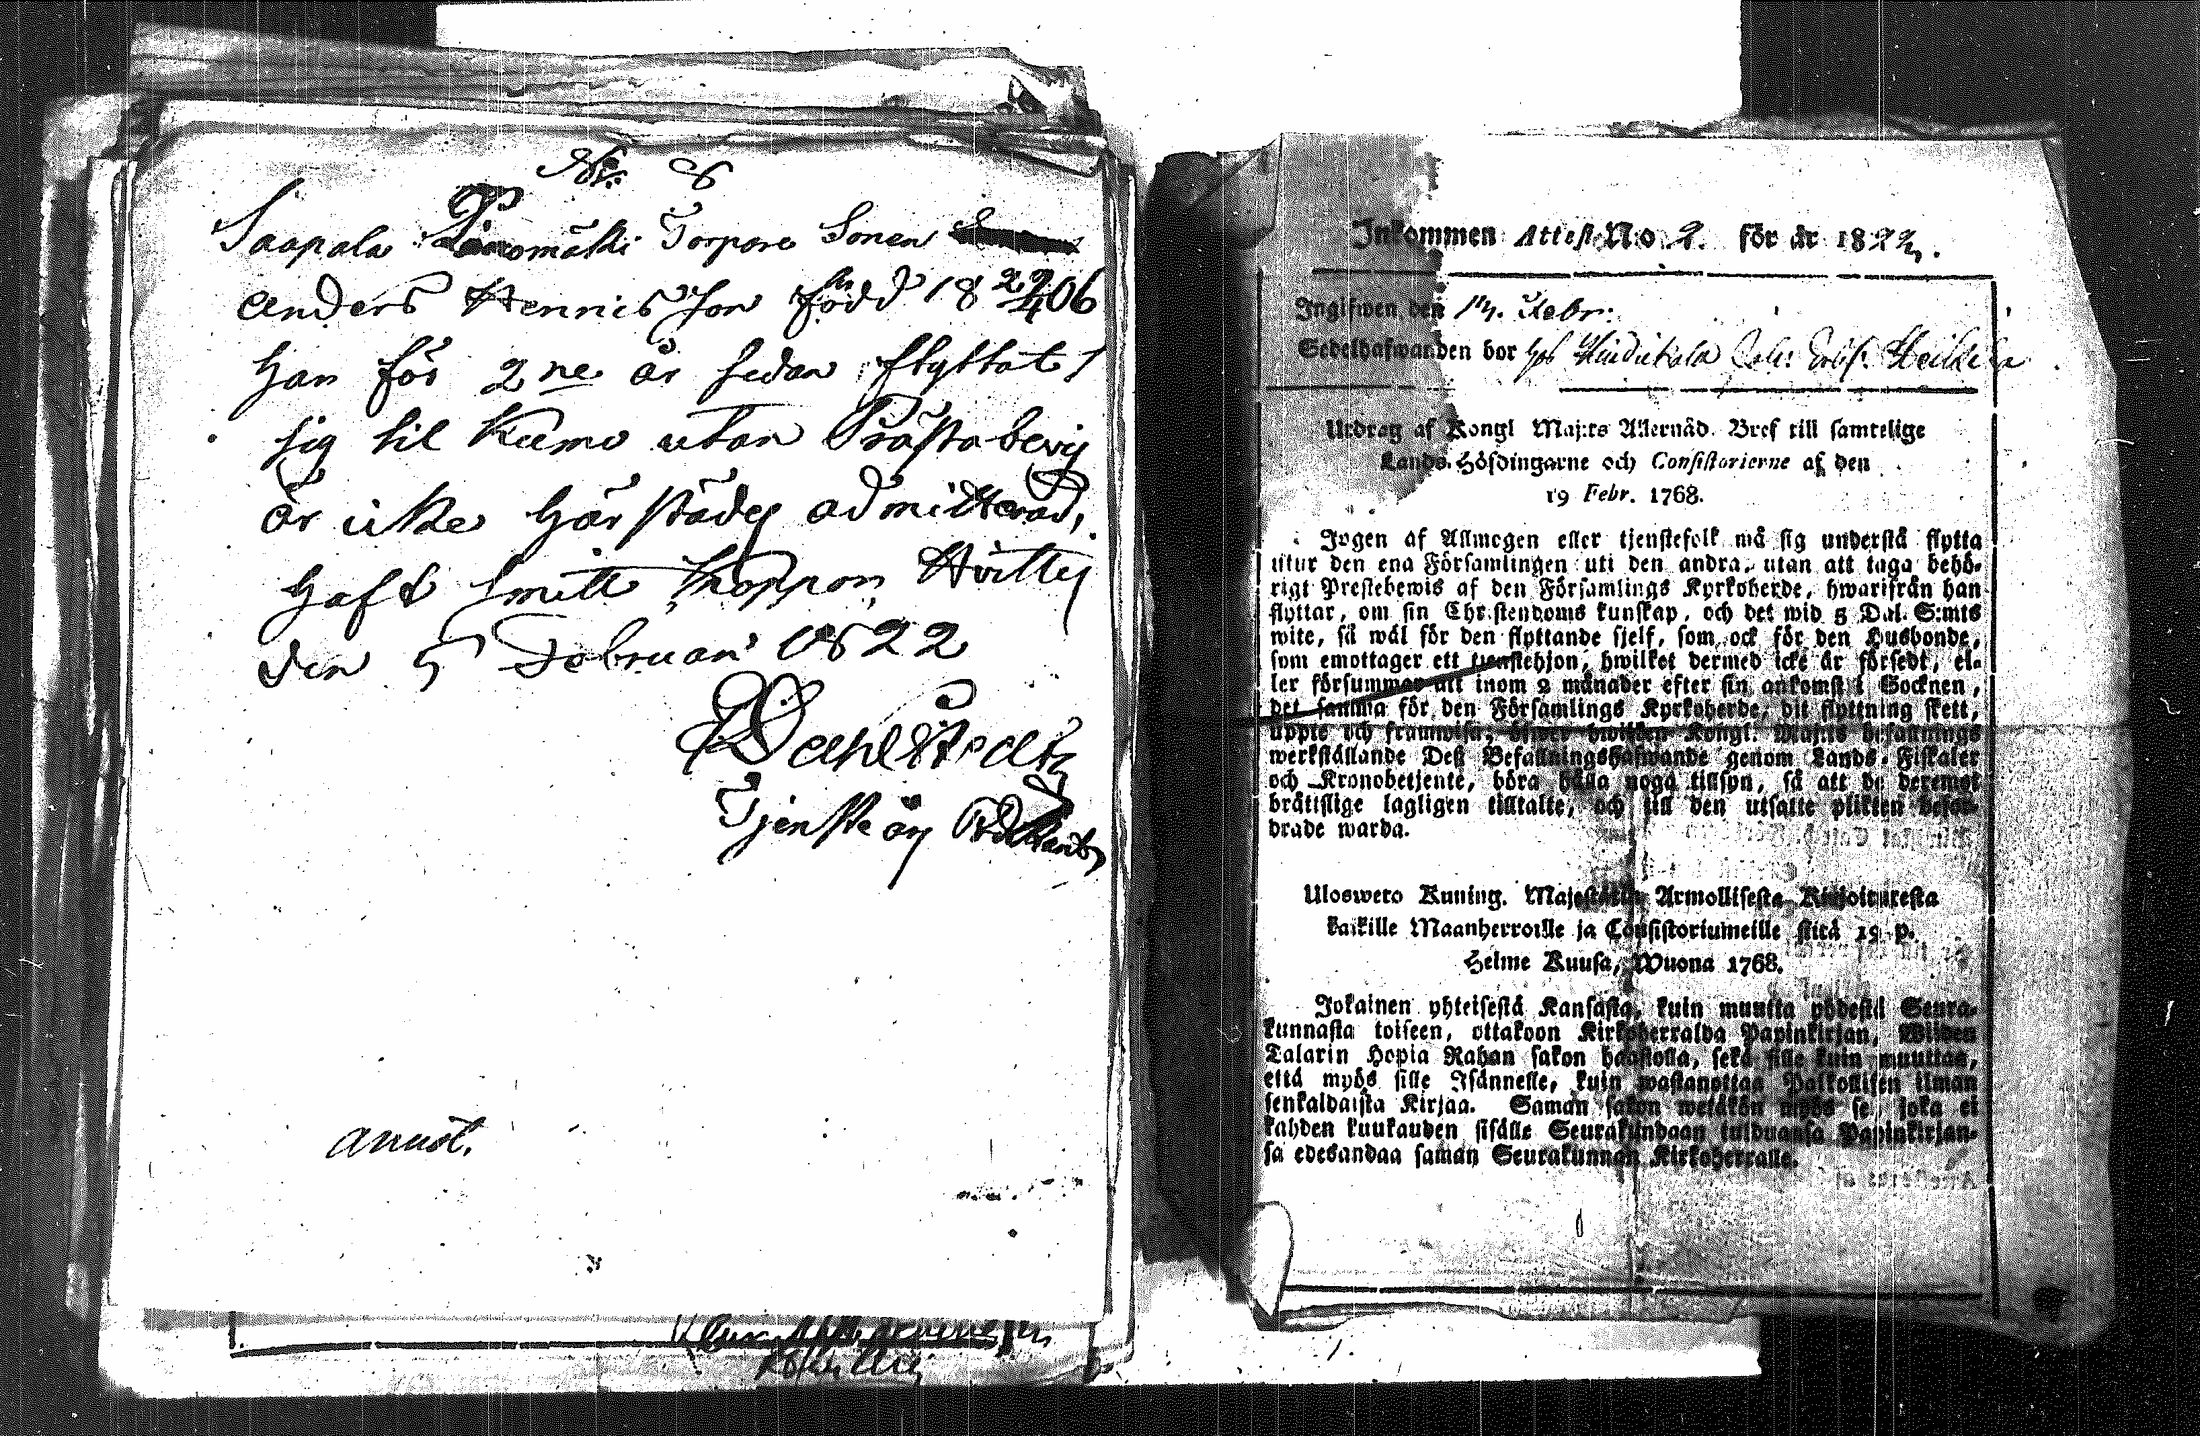 No 8
Saapala Torpare Sonen
Anders Hennis Son född 18 22/4 06
har för 2ne år sedan flyttat
sig til Kumo utan Prästabevis
är icke härstädes admitterad,
haft Smitt koppor, Hvittis
den 5 Februari 1822
Dahlstedt
Tjenste
anust.
Inkommen Attest No 2. för år 1822.
Ingifwen den 14. Febr:
Sedelhafwanden bor hos
Utdrag af Kongl Maj:ts Allernåd. Bref till samtelige
Lands-Höfdingarne och Consistorierne af den
19 Febr. 1768.
Ingen af Allmogen eller tjenstefolk må sig understå flytta
utur den ena Församlingen uti den andra, utan att taga behö-
rigt Prestebewis af den Församlings Kyrkoherde, hwarifrån han
flyttar, om sin Christendoms kunskap, och det wid 5 Dal. S:mts
wite, så wäl för den flyttande sjelf, som ock för den Husbonde,
som emottager ett tjenstehjon, hwilket dermed icke är försedt, el-
ler försummar att inom 2 månader efter sin ankomst i Socknen,
det samma för den Församlings Kyrkoherde, dit flyttning skett,
uppte och framwisa, öfwer hwilken Kongl. Maj:ts befallnings
werkställande Deß Befallningshafwande genom Lands-Fiskaler
och Kronobetjente, böra hålla noga tillsyn, så att de deremot
bråttslige lagligen tilltalte, och till den utsatte plikten befor-
drade warda.
Ulosweto Kuning. Majestätin Armollisesta Kirjoituxesta
kaikille Maanherroille ja Consistoriumeille sitä 19 p.
Helme Kuusa, Wuona 1768.
Jokainen yhteisestä Kansasta, kuin muutta yhdestä Seura-
kunnasta toiseen, ottakoon Kirkoherralda Papinkirjan, Wiiden
Talarin Hopia Rahan sakon haastolla, sekä sille kuin muuttaa,
että myös sille Isännelle, kuin wastanottaa Palkollisen ilman
senkaldaista Kirjaa. Saman sakon wetäkön myös se, joka ei
kahden kuukauden sisälle Seurakundaan tulduansa Papinkirjan-
sa edesandaa saman Seurakunnan Kirkoherralle.